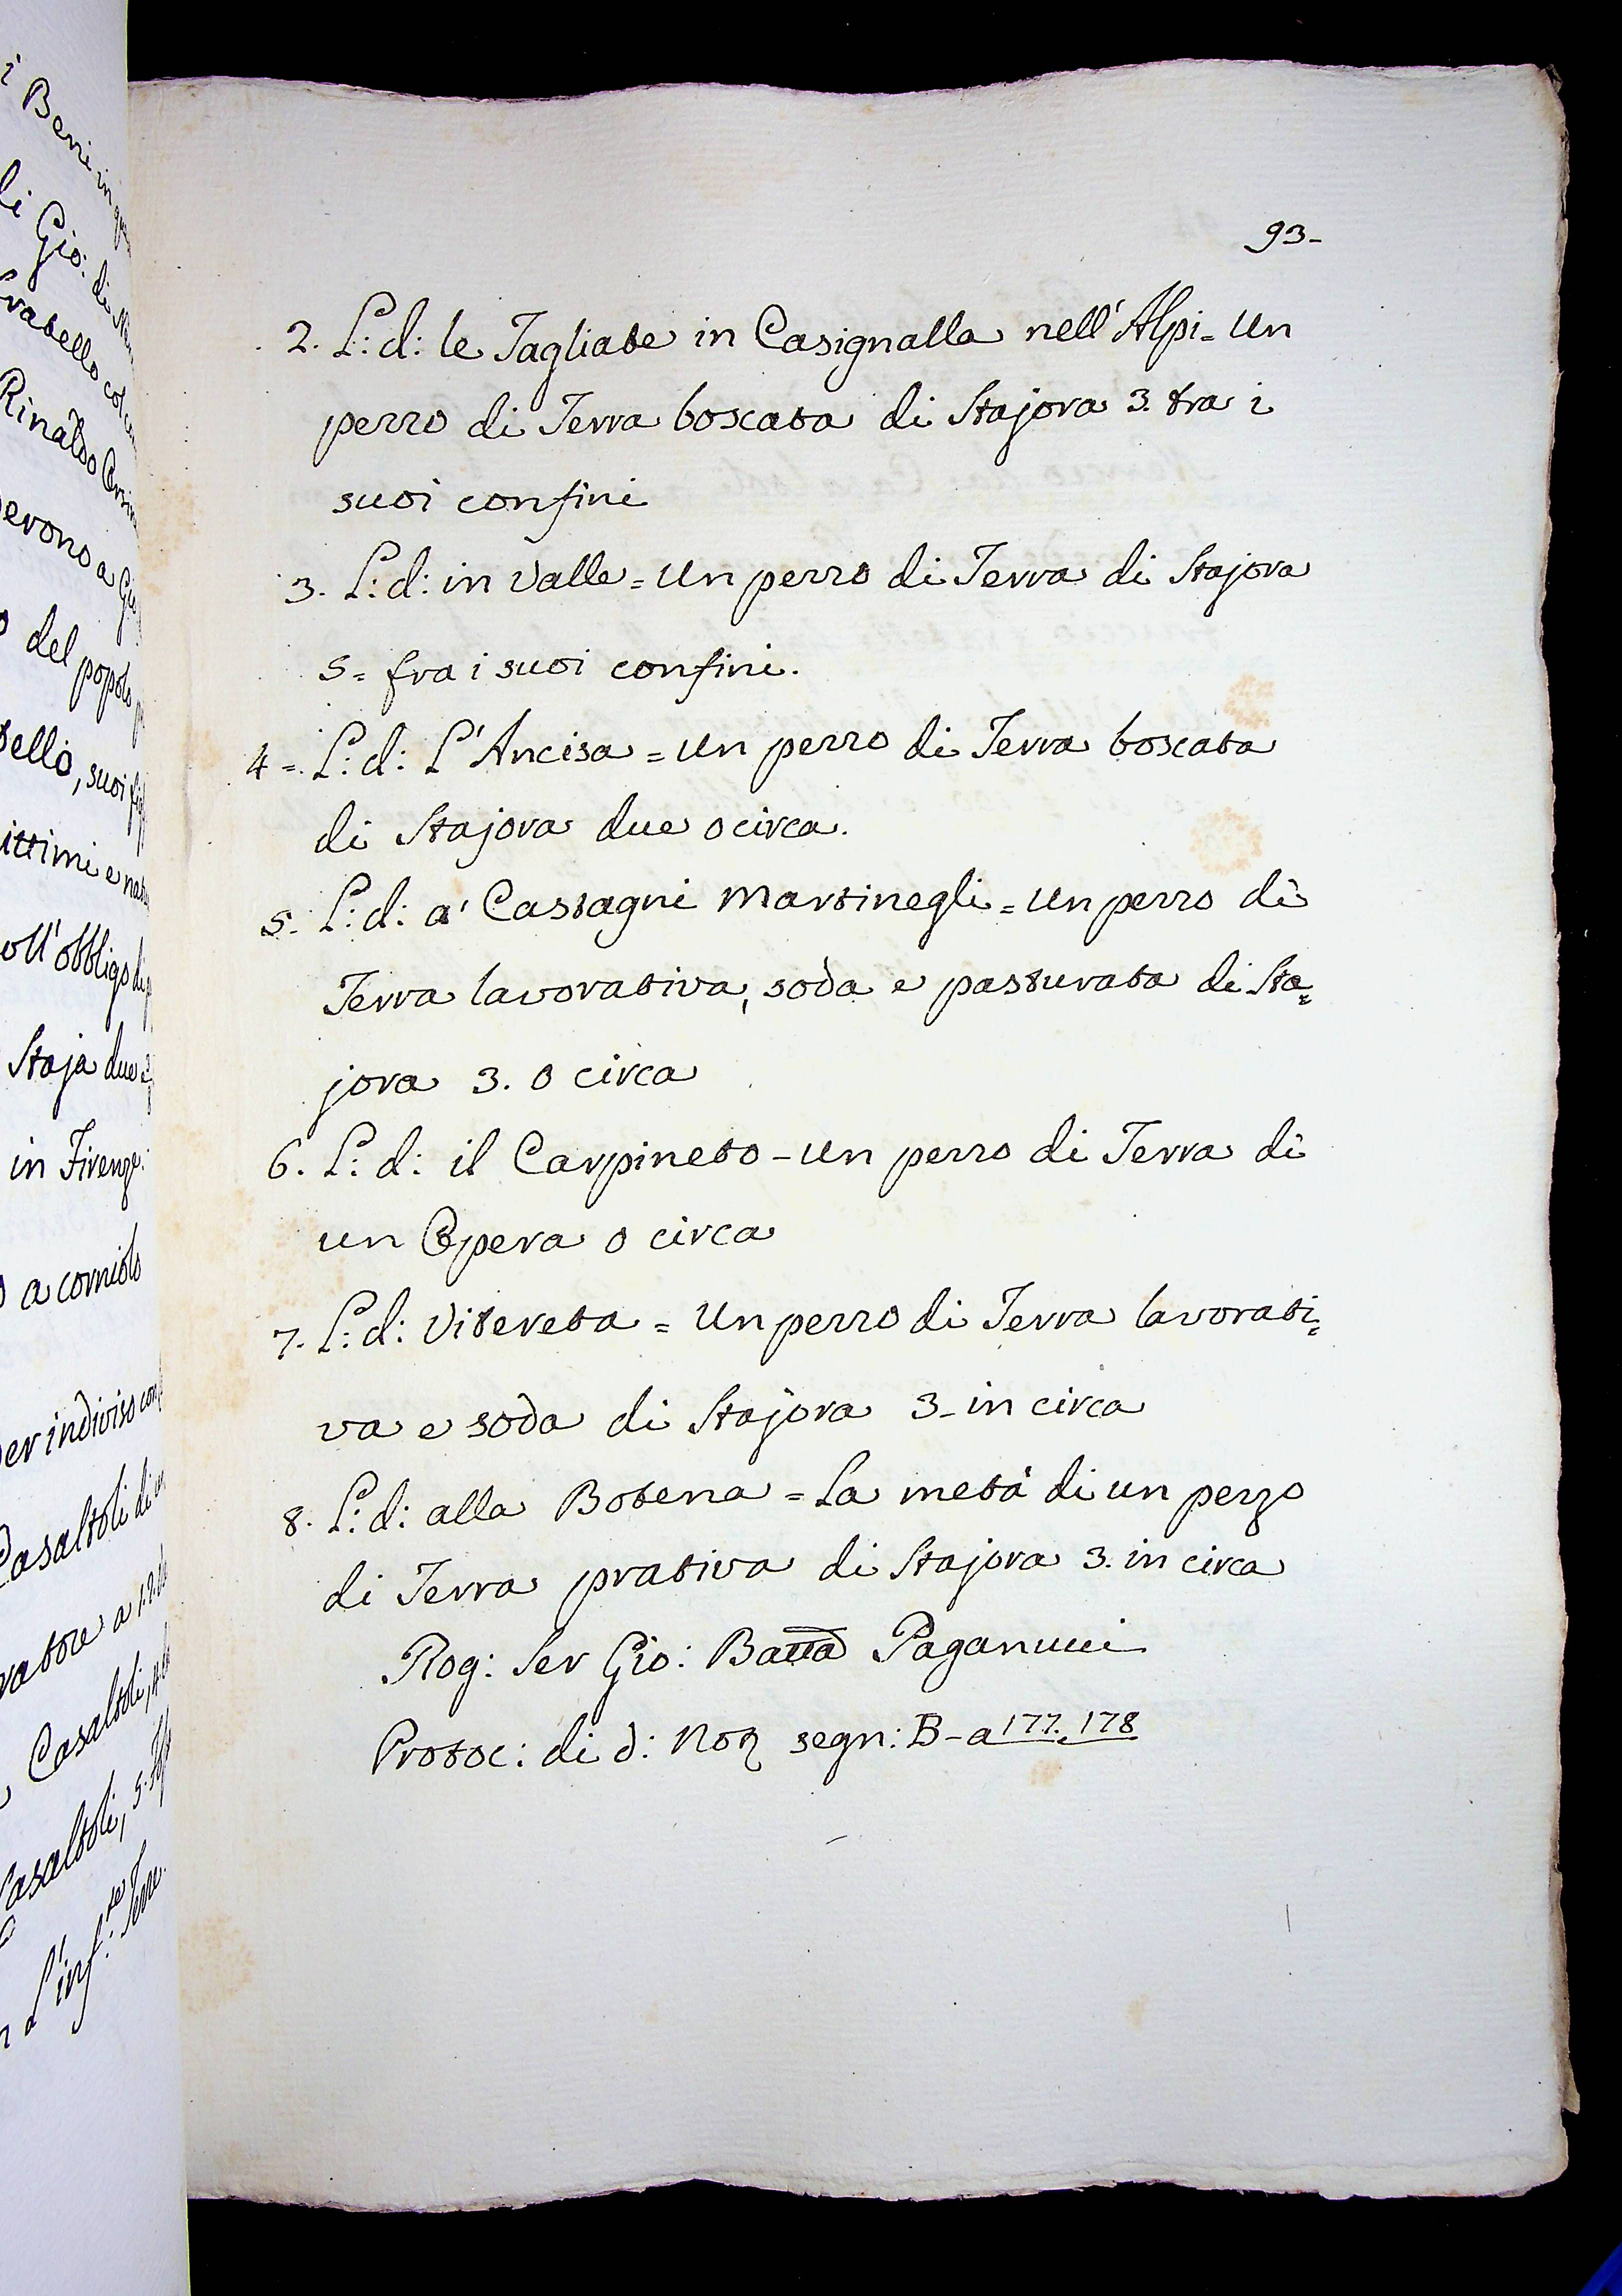 93-
2. L: d: le Tagliate in Casignalla nell'Alpi = Un
pezzo di Terra boscata di Stajora 3. tra i
suoi confini
3. L: d: in Valle = Un pezzo di Terra di Stajora
5 = fra i suoi confini.
4 = L: d: L'Ancisa = Un pezzo di Terra boscata
di Stajora due o circa.
5. L: d: a' Castagni Martinegli = Un pezzo di
Terra lavorativa, soda e pasturata di Sta=
jora 3. o circa
6. L: d: il Carpineto - Un pezzo di Terra di
un Opera o circa
7. L: d: Vitereta = Un pezzo di Terra lavorati=
va e soda di Stajora 3- in circa
8. L: d: alla Botena = La metà di un pezzo
di Terra prativa di Stajora 3. in circa
Rog: Ser Gio: Batta Paganucci
Protoc: di d: Not segn: B - a 177. 178
i Beni in
di Gio: di
Rinaldo
erono a
del popolo
tello, suoi
ittimi e
oll'obbligo di
Staja due
in Firenze.
a corniolo
er indiviso con
Casaltoli di
ratore a
Casaltoli,
Casaltoli, 5.
l'inf:te Terre.